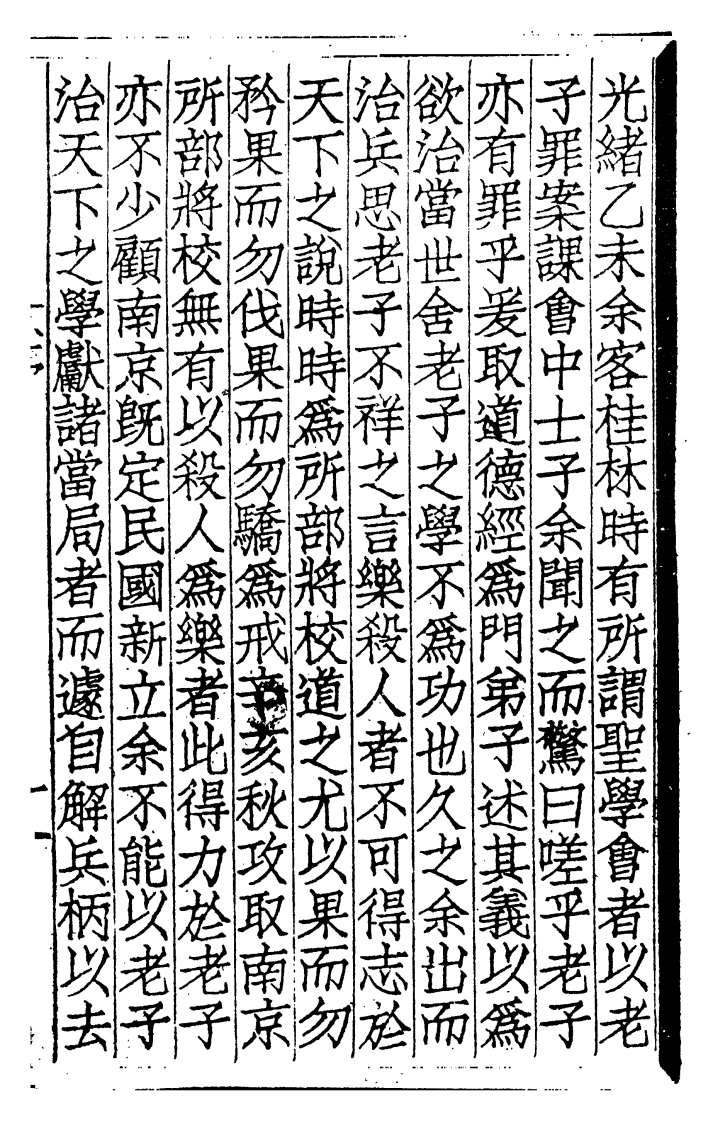 光緒乙未余客桂林時有所謂聖學會者以老
子罪案課會中士子余聞之而驚曰嗟乎老子
亦有罪乎爰取道德經爲門弟子述其義以爲
欲治當世舍老子之學不爲功也久之余出而
治兵思老子不祥之言樂殺人者不可得志於
天下之說時時爲所部將校道之尤以果而勿
矜果而勿伐果而勿驕爲戒辛亥秋攻取南京
所部將校無有以殺人爲樂者此得力於老子
亦不少顧南京旣定民國新立余不能以老子
治天下之學獻諸當局者而遽自解兵柄以去